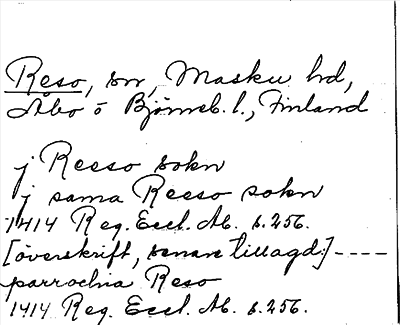 Reso, sn, Masku hd,
Åbo o Björneb. l., Finland
j Reeso sokn
j sama Reeso sokn
1414 Reg. Eccl. Ab. s. 256.
[överskrift, senare tillagd:] ----
parrochia Reso
1414 Reg. Eccl. Ab. s. 256.